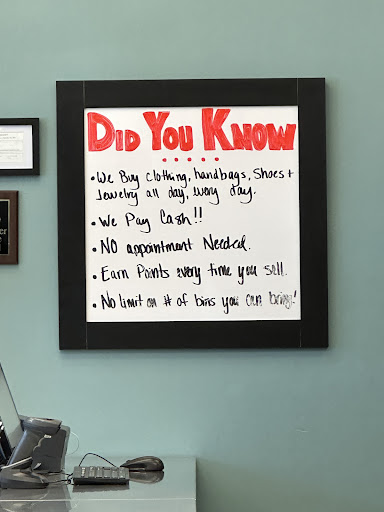 DID YOU KNOW
.....
• We Buy clothing, handbags, Shoes +
Jewelry all day, every day.
• We Pay Cash!!
• NO appointment Needed.
• Earn Points every time you sell.
• No limit on # of bins you can bring!